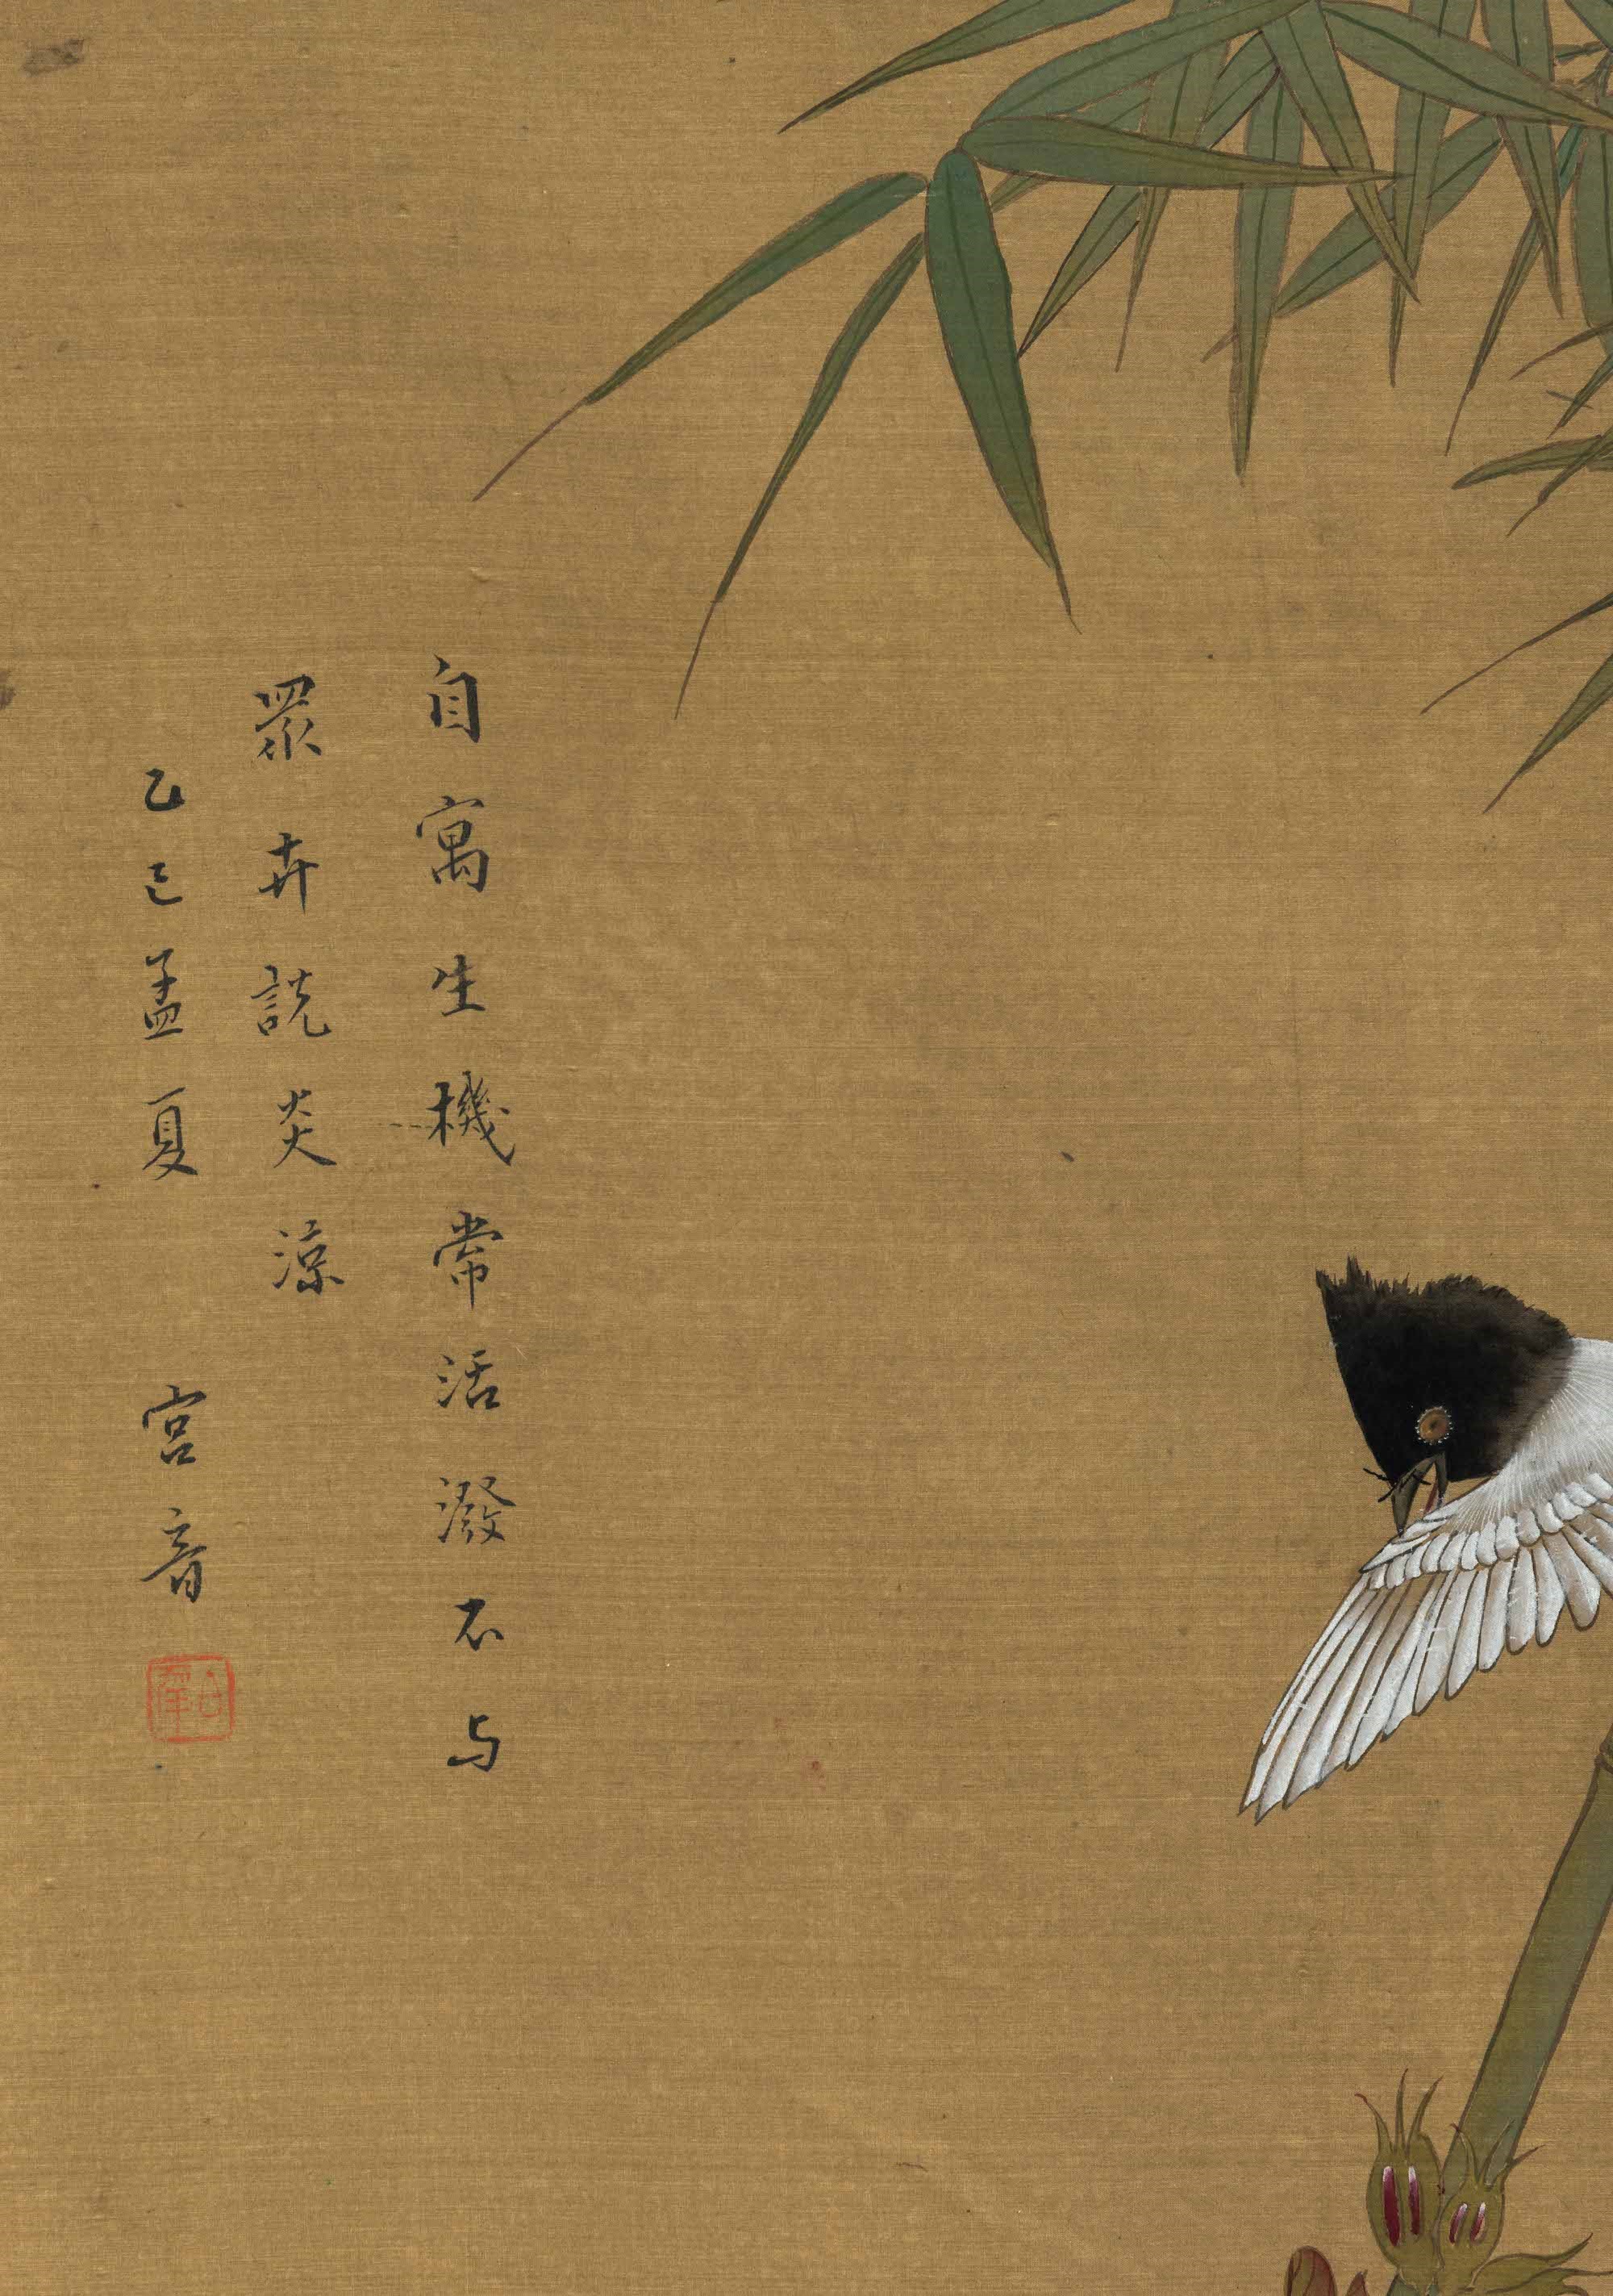 自寓生機常活潑不与
眾卉説炎涼
乙巳孟夏 宮音